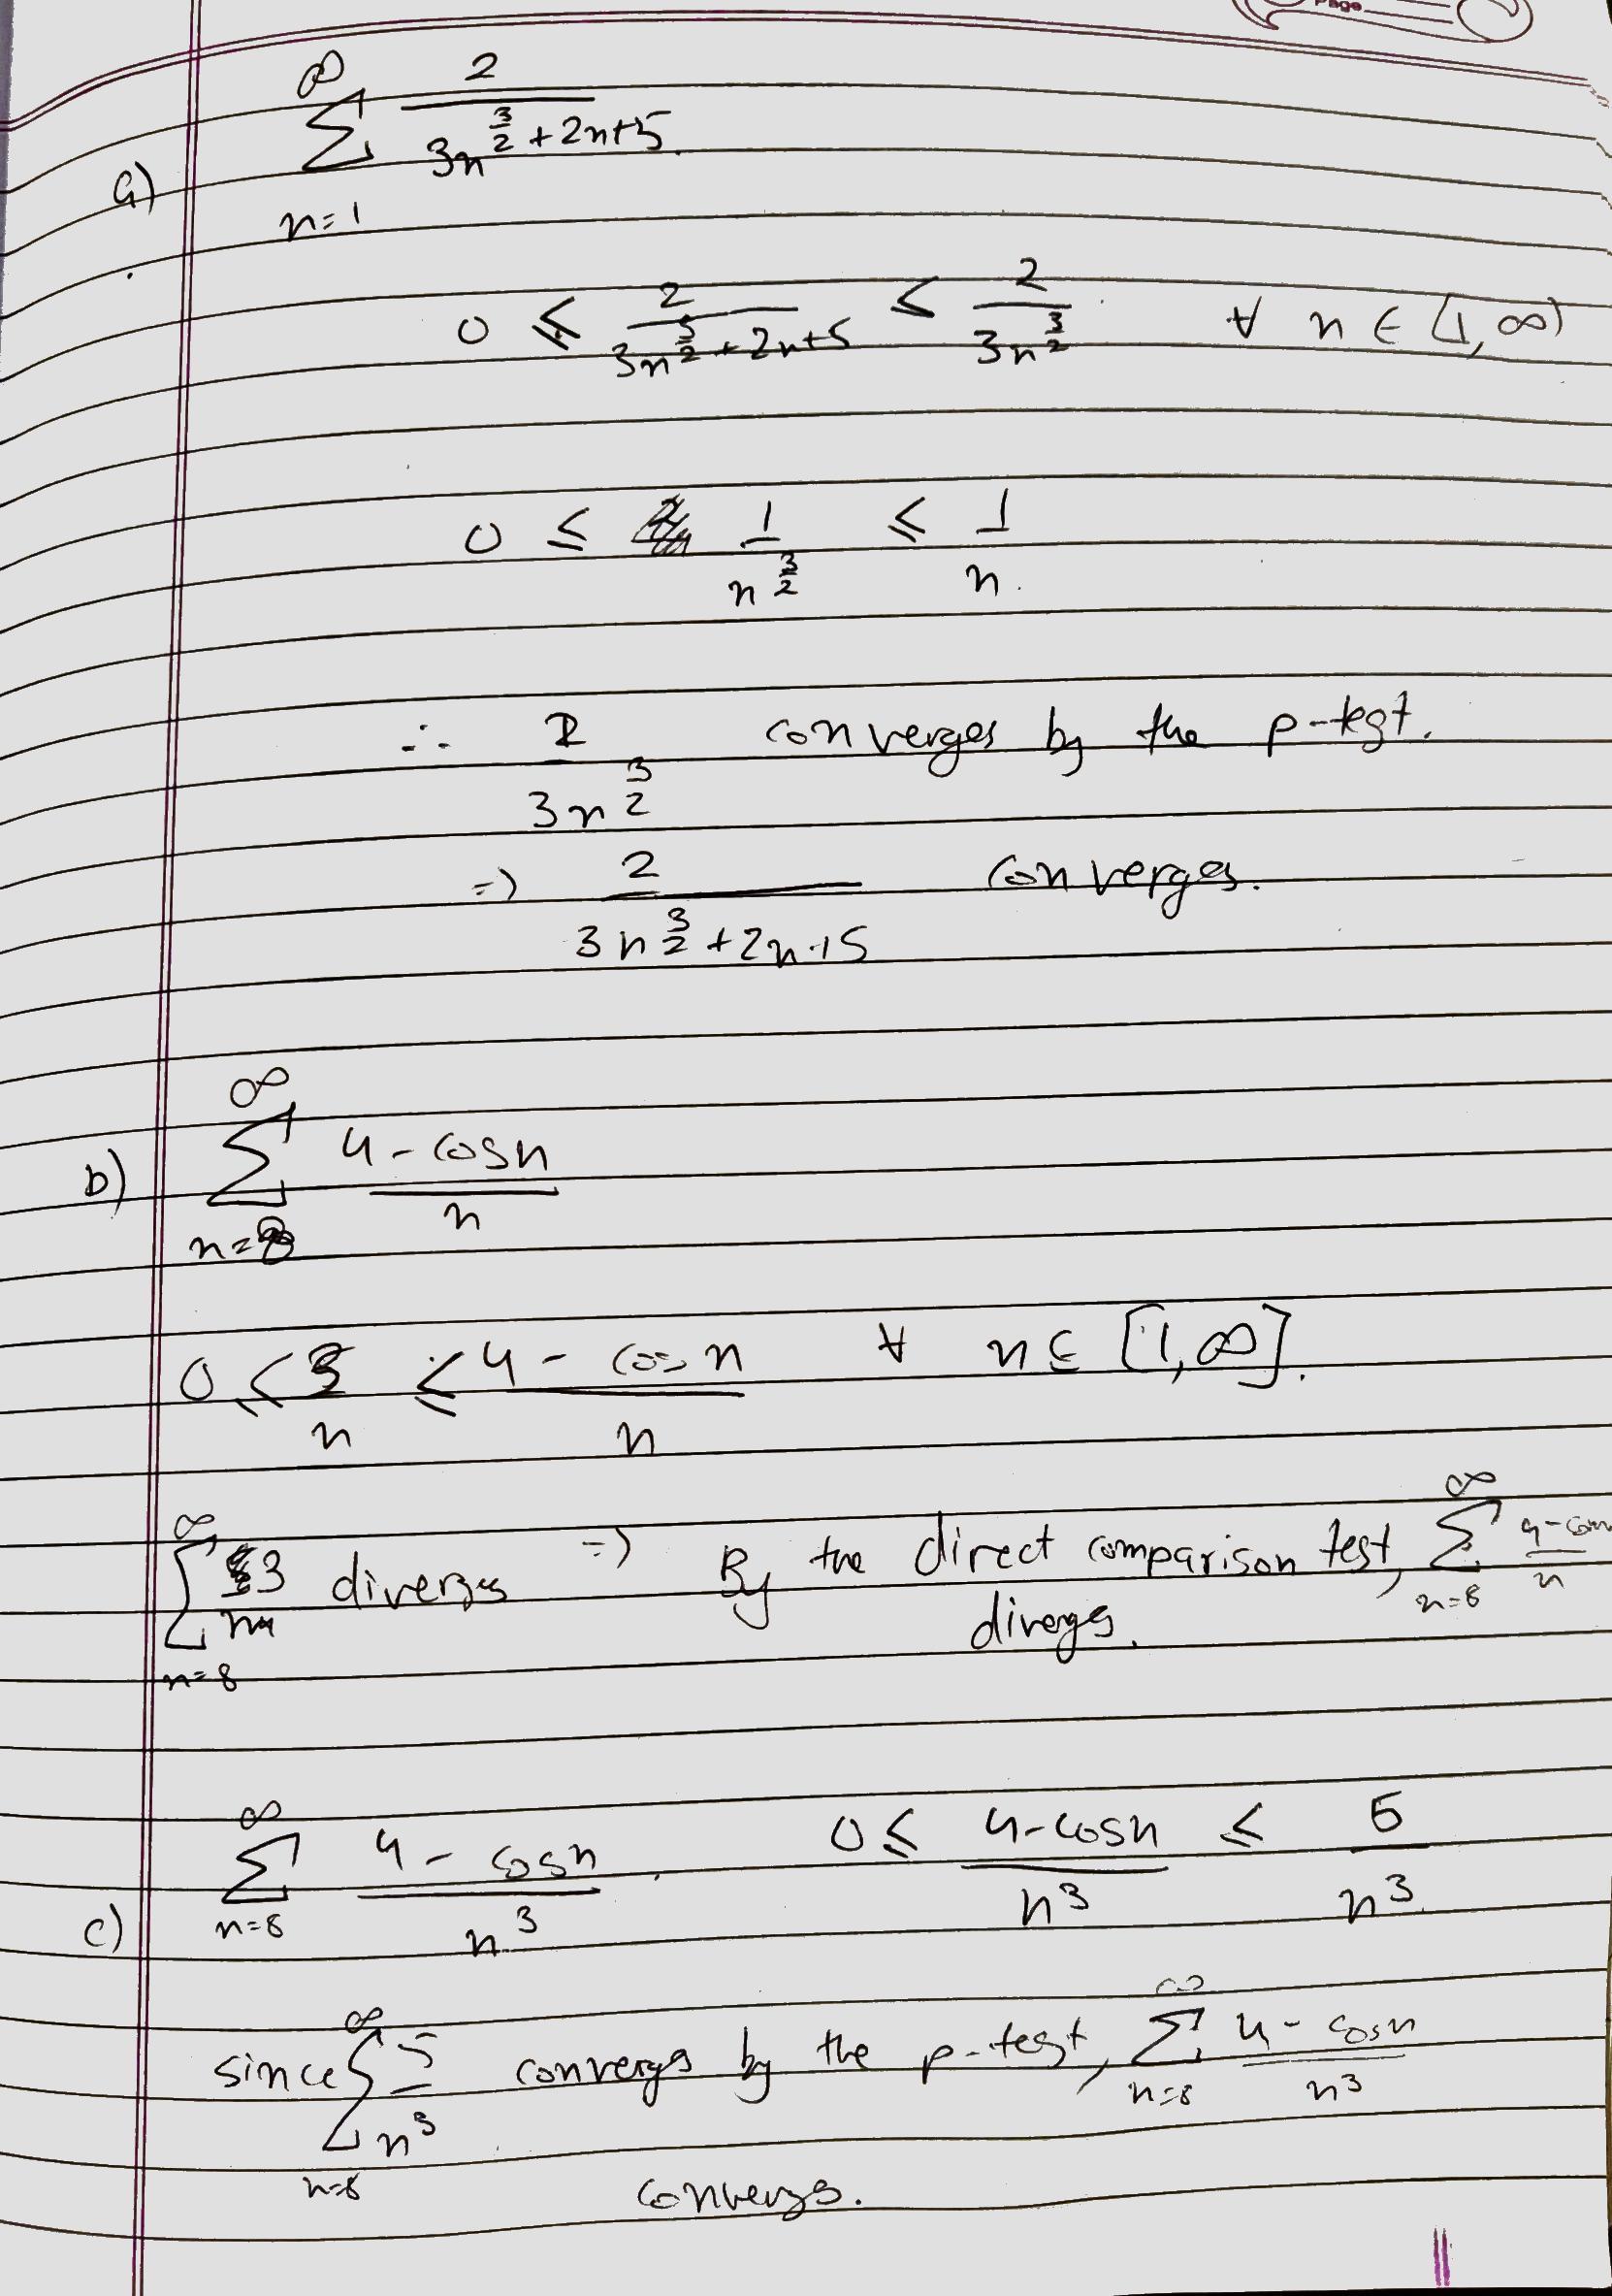 Page
a) ∞ Σ n=1 2 / (3n^(3/2) + 2n+5)
0 ≤ 2 / (3n^(3/2) + 2n+5) ≤ 2 / (3n^(3/2)) ∀ n ∈ [1, ∞)
0 ≤ 1 / n^(3/2) ≤ 1 / n
∴ 2 / (3n^(3/2)) converges by the p-test.
=> 2 / (3n^(3/2) + 2n+5) converges.
b) ∞ Σ n=8 (4 - cosn) / n
0 ≤ 3 / n ≤ (4 - cosn) / n ∀ n ∈ [1, ∞].
∞ Σ n=8 3 / n diverges => By the direct comparison test, ∞ Σ n=8 (4-cosn) / n
diverges.
c) ∞ Σ n=8 (4 - cosn) / n^3 . 0 ≤ (4-cosn) / n^3 ≤ 5 / n^3
since ∞ Σ n=8 5 / n^3 converges by the p-test, ∞ Σ n=8 (4 - cosn) / n^3
converges.